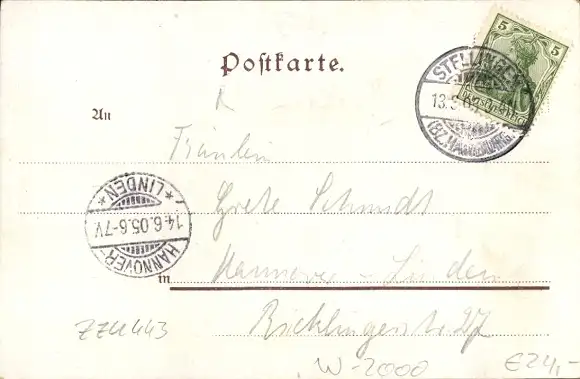 Postkarte.
5 5
DEUTSCHES REICH
STELLINGEN
13.
(BZ. HAMBURG)
An
Fräulein
Grete Schmidt
*LINDEN*
14.6.05.6-7V.
HANNOVER-
in Hannover-Linden
Ricklingerstr. 27
ZZ4443
W-2000 €24,-